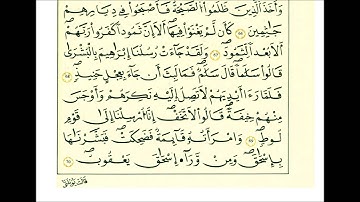 وَأَخَذَ الَّذِينَ ظَلَمُوا الصَّيْحَةُ فَأَصْبَحُوا فِي دِيَارِهِمْ
جَاثِمِينَ ٦٧ كَأَن لَّمْ يَغْنَوْا فِيهَا أَلَا إِنَّ ثَمُودَ كَفَرُوا رَبَّهُمْ
أَلَا بُعْدًا لِّثَمُودَ ٦٨ وَلَقَدْ جَاءَتْ رُسُلُنَا إِبْرَاهِيمَ بِالْبُشْرَىٰ
قَالُوا سَلَامًا قَالَ سَلَامٌ فَمَا لَبِثَ أَن جَاءَ بِعِجْلٍ حَنِيذٍ ٦٩
فَلَمَّا رَأَىٰ أَيْدِيَهُمْ لَا تَصِلُ إِلَيْهِ نَكِرَهُمْ وَأَوْجَسَ
مِنْهُمْ خِيفَةً قَالُوا لَا تَخَفْ إِنَّا أُرْسِلْنَا إِلَىٰ قَوْمِ
لُوطٍ ٧٠ وَامْرَأَتُهُ قَائِمَةٌ فَضَحِكَتْ فَبَشَّرْنَاهَا
بِإِسْحَاقَ وَمِن وَرَاءِ إِسْحَاقَ يَعْقُوبَ ٧١
قَالَتْ يَا وَيْلَتَىٰ